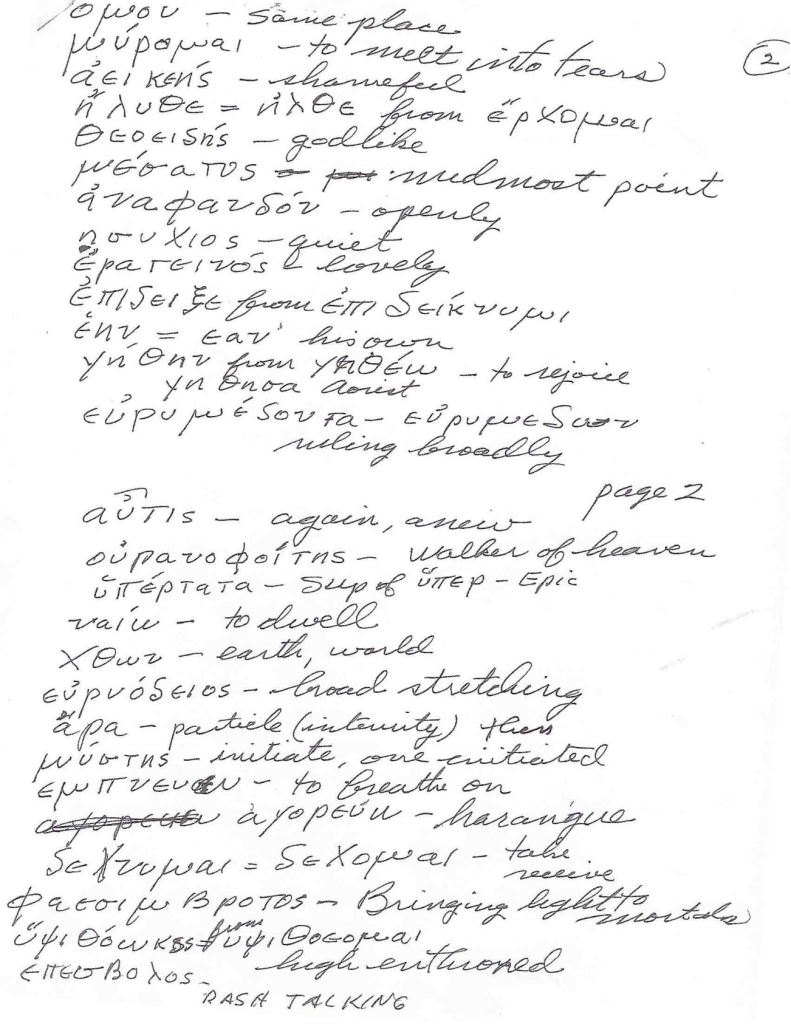 ομου – same place
μύρομαι – to melt into tears
②
ἀεικής – shameful
ἤλυθε = ἦλθε from ἔρχομαι
θεοειδής – godlike
μέσατος – midmost point
ἀναφανδόν – openly
ησυχιος – quiet
ἐρατεινός – lovely
ἐπιδειξε from ἐπιδείκνυμι
ἐην = εαν' his own
γήθην from γηθέω – to rejoice
γηθησα aorist
εὐρυμέδοντα – εὐρυμεδων
ruling broadly
page 2
αὖτις – again, anew
οὐρανοφοίτης – walker of heaven
ὑπέρτατα – Sup of ὕπερ – Epic
ναίω – to dwell
χθων – earth, world
εὐρυόδειος – broad stretching
ἄρα – particle (intensity) then
μύστης – initiate, one initiated
εμπνευ – to breathe on
ἀγορεύω – harangue
δεχνυμαι = δεχομαι – take
receive
φαεσιμβροτος – Bringing light to
mortals
ὕψιθόωκος from ὑψιθοεομαι
high enthroned
επεσβολος –
RASH TALKING